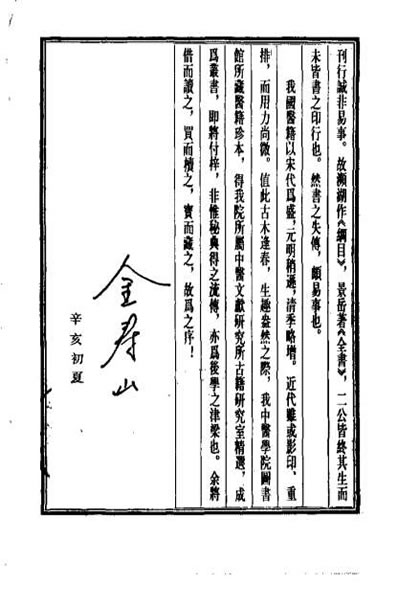 刊行誠非易事。故瀕湖作《綱目》，景岳著《全書》，二公皆終其生而
未皆書之印行也。然書之失傳，頗易事也。
我國醫籍以宋代爲盛，元明稍遜，清季略增。近代雖或影印、重
排，而用力尚微。值此古木逢春，生趣盎然之際，我中醫學院圖書
館所藏醫籍珍本，得我院所屬中醫文獻研究所古籍研究室精選，成
爲叢書，即將付梓，非惟秘典得之流傳，亦爲後學之津梁也。余將
借而讀之，買而積之，寶而藏之，故爲之序！
金寿山
辛亥初夏